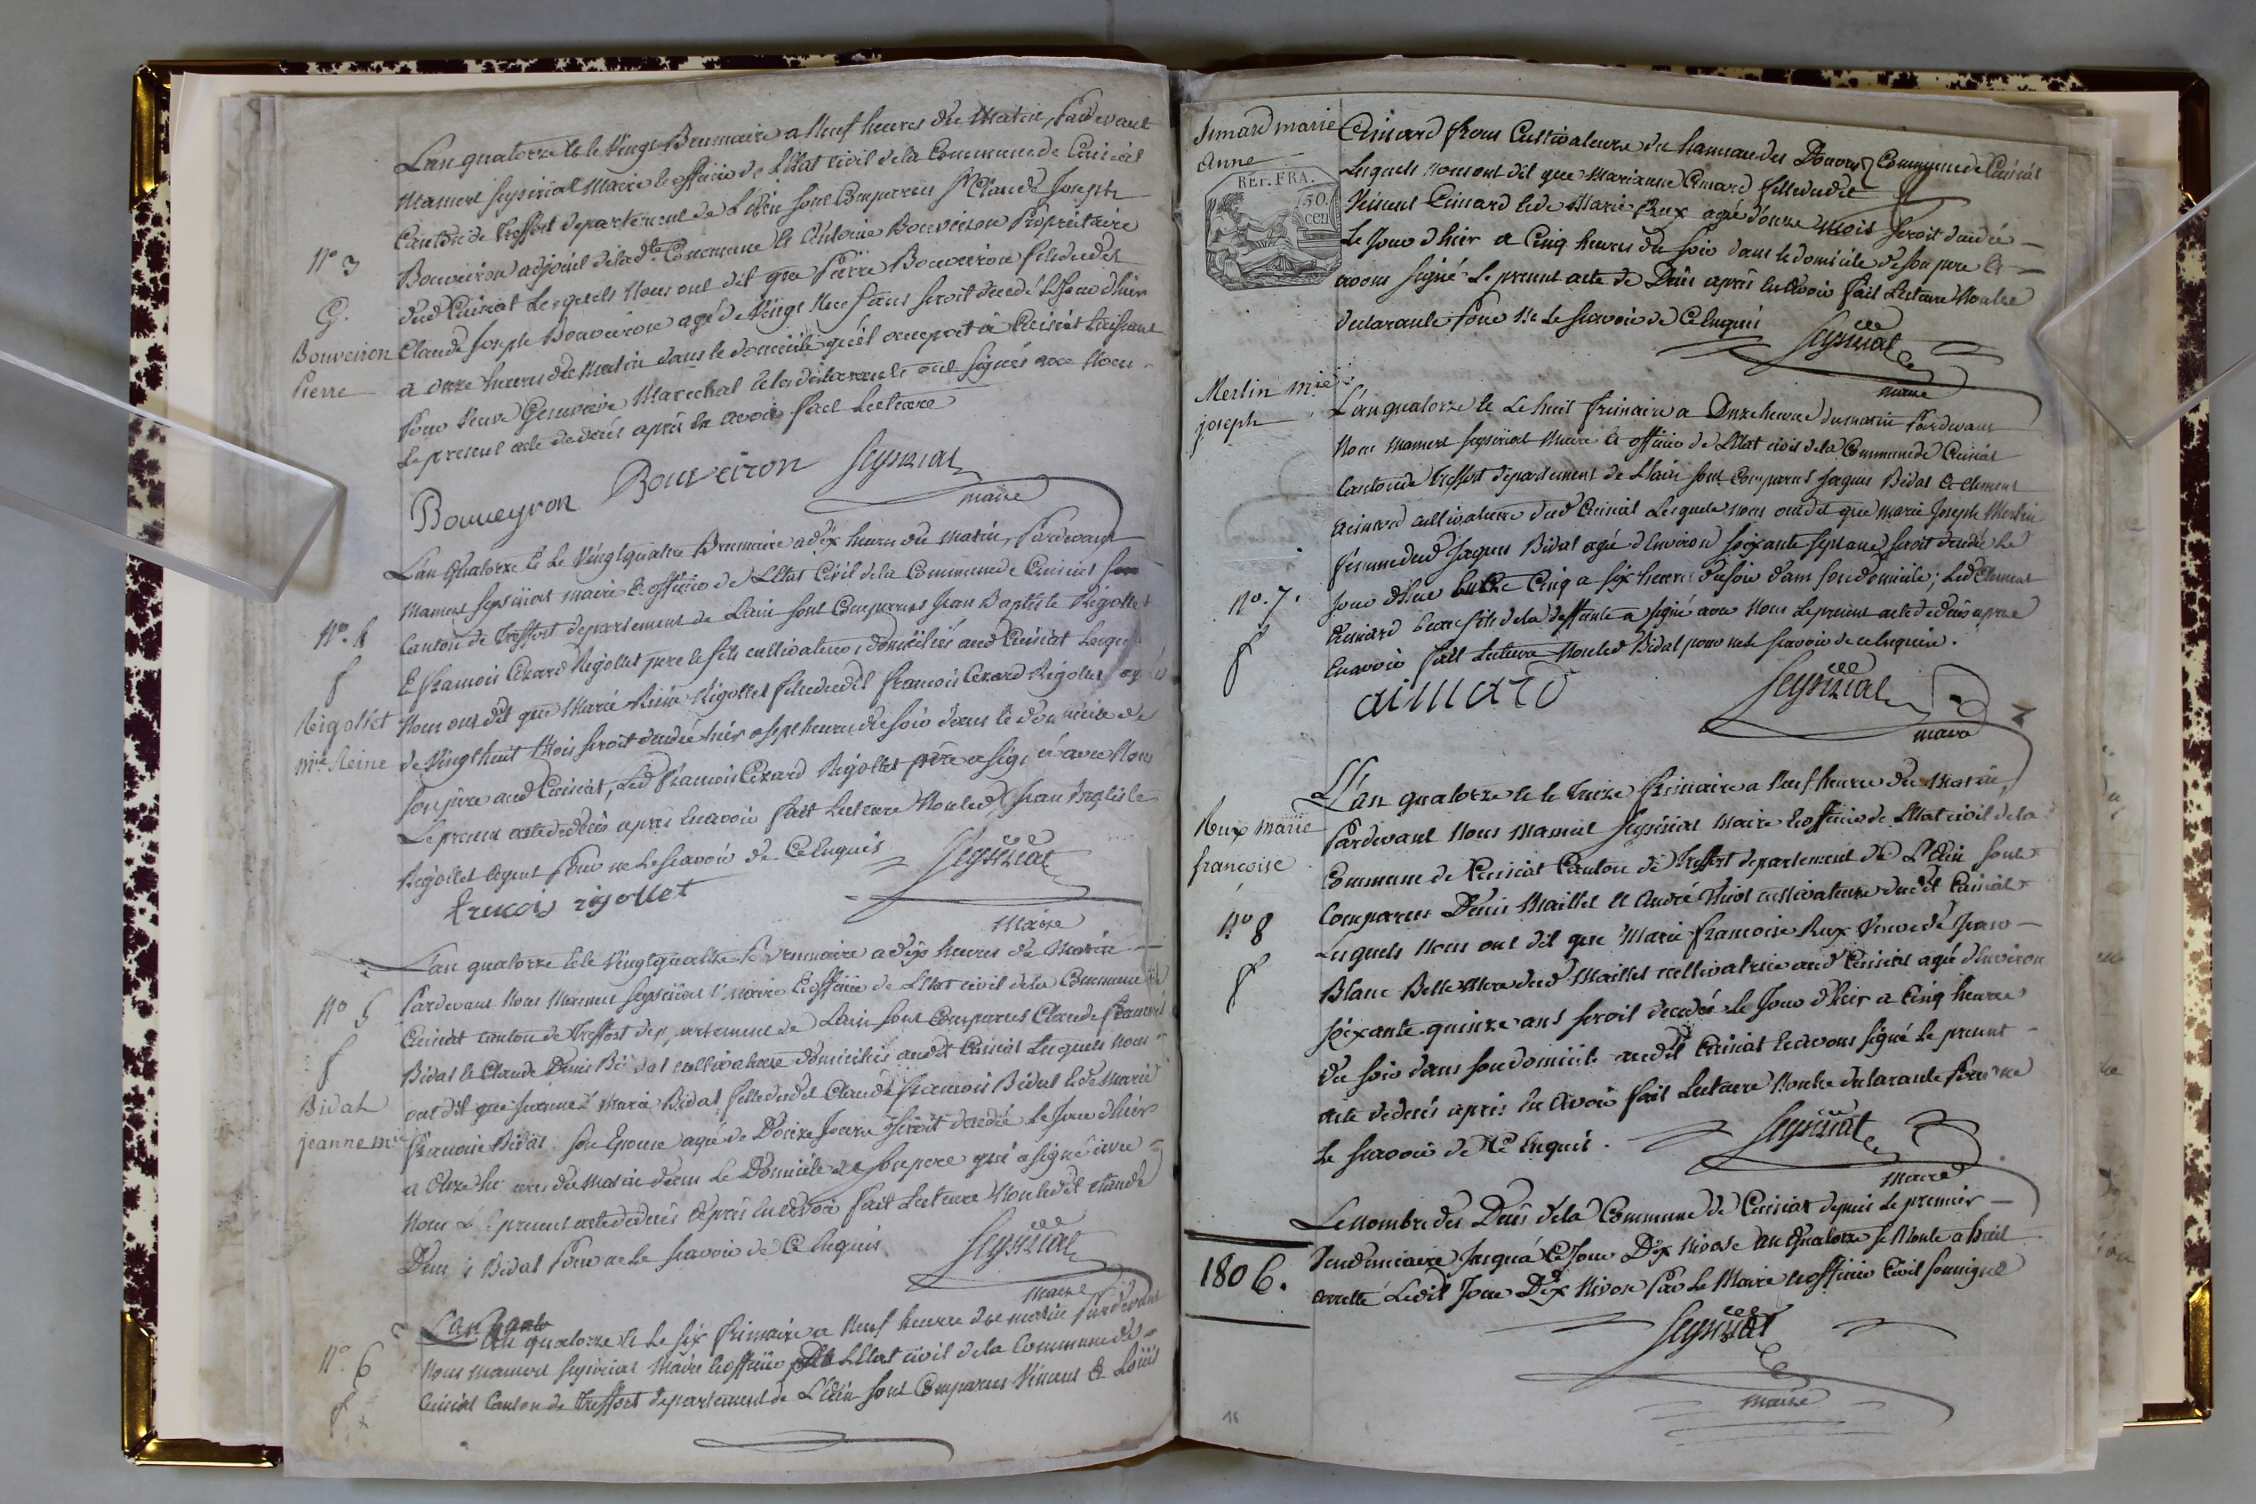 L'an quatorze et le vingt Brumaire a Neuf heures du Matin, Pardevant
Mamert Seyssiial Maire et officier de L'Etat civil de la Commune de Cuisiat
Canton de Treffort departement de L'Ain sont Comparus Sr. Claude Joseph
Bouveiron adjoint de lad.te Commune et Antoine Bouveiron Propriétaire
dud Cuisiat Lesquels Nous ont dit que Pierre Bouveiron fils dudit
Claude Joseph Bouveiron agé de Vingt Neuf ans seroit decedé le Jour d'hier
a onze heures du Matin dans le domicile qu'il occupoit à Cuisiat Laissant
pour Veuve Genevieve Marechal et les déclarants ont signés avec Nous
Le present acte de decés après en avoir fait Lecture
N° 3
G.
Bouveiron
Pierre
Bouveyron Bouveiron Seyssiial
maire
L'an Quatorze et Le Vingt quatre Brumaire a dix heures du Matin, Pardevant
Mamert Seyssiial maire et officier de L'Etat Civil de la Commune de Cuisiat
Canton de Treffort departement de Lain sont Comparus Jean Baptiste Rigollet
Et Francois Cezard Rigollet pere et fils cultivateurs domiciliés aud Cuisiat Lesquels
Nous ont dit que Marie Reine Rigollet fille dudit Francois Cezard Rigollet agée
de Vingt huit Mois seroit decedée hier a sept heures du soir dans le domicile de
son père aud Cuisiat, Led Francois Cezard Rigollet père a signé avec Nous
Le present acte de decès après en avoir fait Lecture Non led Jean Baptiste
Rigollet ayeul Pour ne le scavoir de Ce Enquis
N° 4
f
Rigollet
mie Reine
francois rigollet Seyssiial
Maire
L'an quatorze et le Vingt quatre Brumaire a dix heures du Matin
Pardevant Nous Mamert Seyssiial Maire et officier de L'Etat civil de la Commune de
Cuisiat canton de Treffort departement de Lain sont Comparus Claude Francois
Bidal et Claude Denis Bidal cultivateurs domiciliés audit Cuisiat Lesquels Nous
ont dit que Jeanne Marie Bidal fille dudit Claude Francois Bidal et de Marie
Francoise Bidal son Epouse agée de Douze Jours seroit decedée Le Jour d'hier
a Onze heures du Matin dans Le Domicile de son pere qui a signé avec
Nous Le present acte de decés après en avoir fait Lecture Non ledit Claude
Denis Bidal Pour ne le scavoir de Ce Enquis
N° 5
f
Bidal
jeanne mie
Seyssiial
maire
L'an quatorze et Le six frimaire a Neuf heures du matin Pardevant
Nous Mamert Seyssiial Maire et officier de L'Etat civil de la Commune de
Cuisiat Canton de Treffort departement de L'Ain sont Comparus Vincent et Louis
N° 6
f
Aimard marie
Anne
REP. FRA.
50.
cen
Cuinard freres Cultivateurs du hameau des Commune de Cuisiat
Lesquels nous ont dit que Marianne Cuinard fille dudit
Vincent Cuinard et de Marie Rux agée d'onze mois seroit decedé
Le Jour d'hier a Cinq heures du soir dans le domicile de son pere Et
avons signé Le present acte de Decés après en avoir fait Lecture Non les
declarants pour ne Le scavoir de Ce Enquis
Seyssiial
maire
Merlin mie
joseph
N°. 7.
f
L'an quatorze et Le huit frimaire a Onze heures du matin Pardevant
Nous Mamert Seyssiial Maire et officier de L'Etat civil de la Commune de Cuisiat
Canton de Treffort departement de L'Ain sont Comparus Jaques Bidal et Clement
Cuinard cultivateurs dud Cuisiat Lesquels nous ont dit que Marie Joseph Merlin
femme dud Jaques Bidal agée d'Environ soixante sept ans seroit decedée Le
Jour d'hier entre Cinq a six heures du soir dans son domicile; Led Clement
Cuinard beau fils de la deffunte a signé avec Nous Le present acte de decés apres
En avoir fait Lecture Non led Bidal pour ne le scavoir de ce Enquis.
aimard Seyssiial
maire
Rux marie
francoise
N° 8
f
L'an quatorze et le treize frimaire a Neuf heures du Matin
Pardevant Nous Mamert Seyssiial Maire et officier de L'Etat civil de la
Commune de Cuisiat Canton de Treffort departement de L'Ain sont
Comparus Denis Maillet et André cultivateurs dudit Cuisiat
Lesquels Nous ont dit que Marie francoise Rux Veuve de Jean
Blanc Belle Mere dud Maillet cultivatrice aud Cuisiat agée d'Environ
soixante quinze ans seroit decedée Le Jour d'hier a Cinq heures
du soir dans son domicile audit Cuisiat et avons signé Le present
acte de decés après En avoir fait Lecture Non les declarants Pour ne
Le scavoir de Ce Enquis.
Seyssiial
maire
Le nombre des Decés de la Commune de Cuisiat depuis Le premier
Vendemiaire Jusqu'à Ce Jour Dix Nivose An Quatorze se Monte a huit
arretté Ledit Jour Dix Nivose Par Le Maire et officier Civil soussigné
1806.
Seyssiial
maire
16